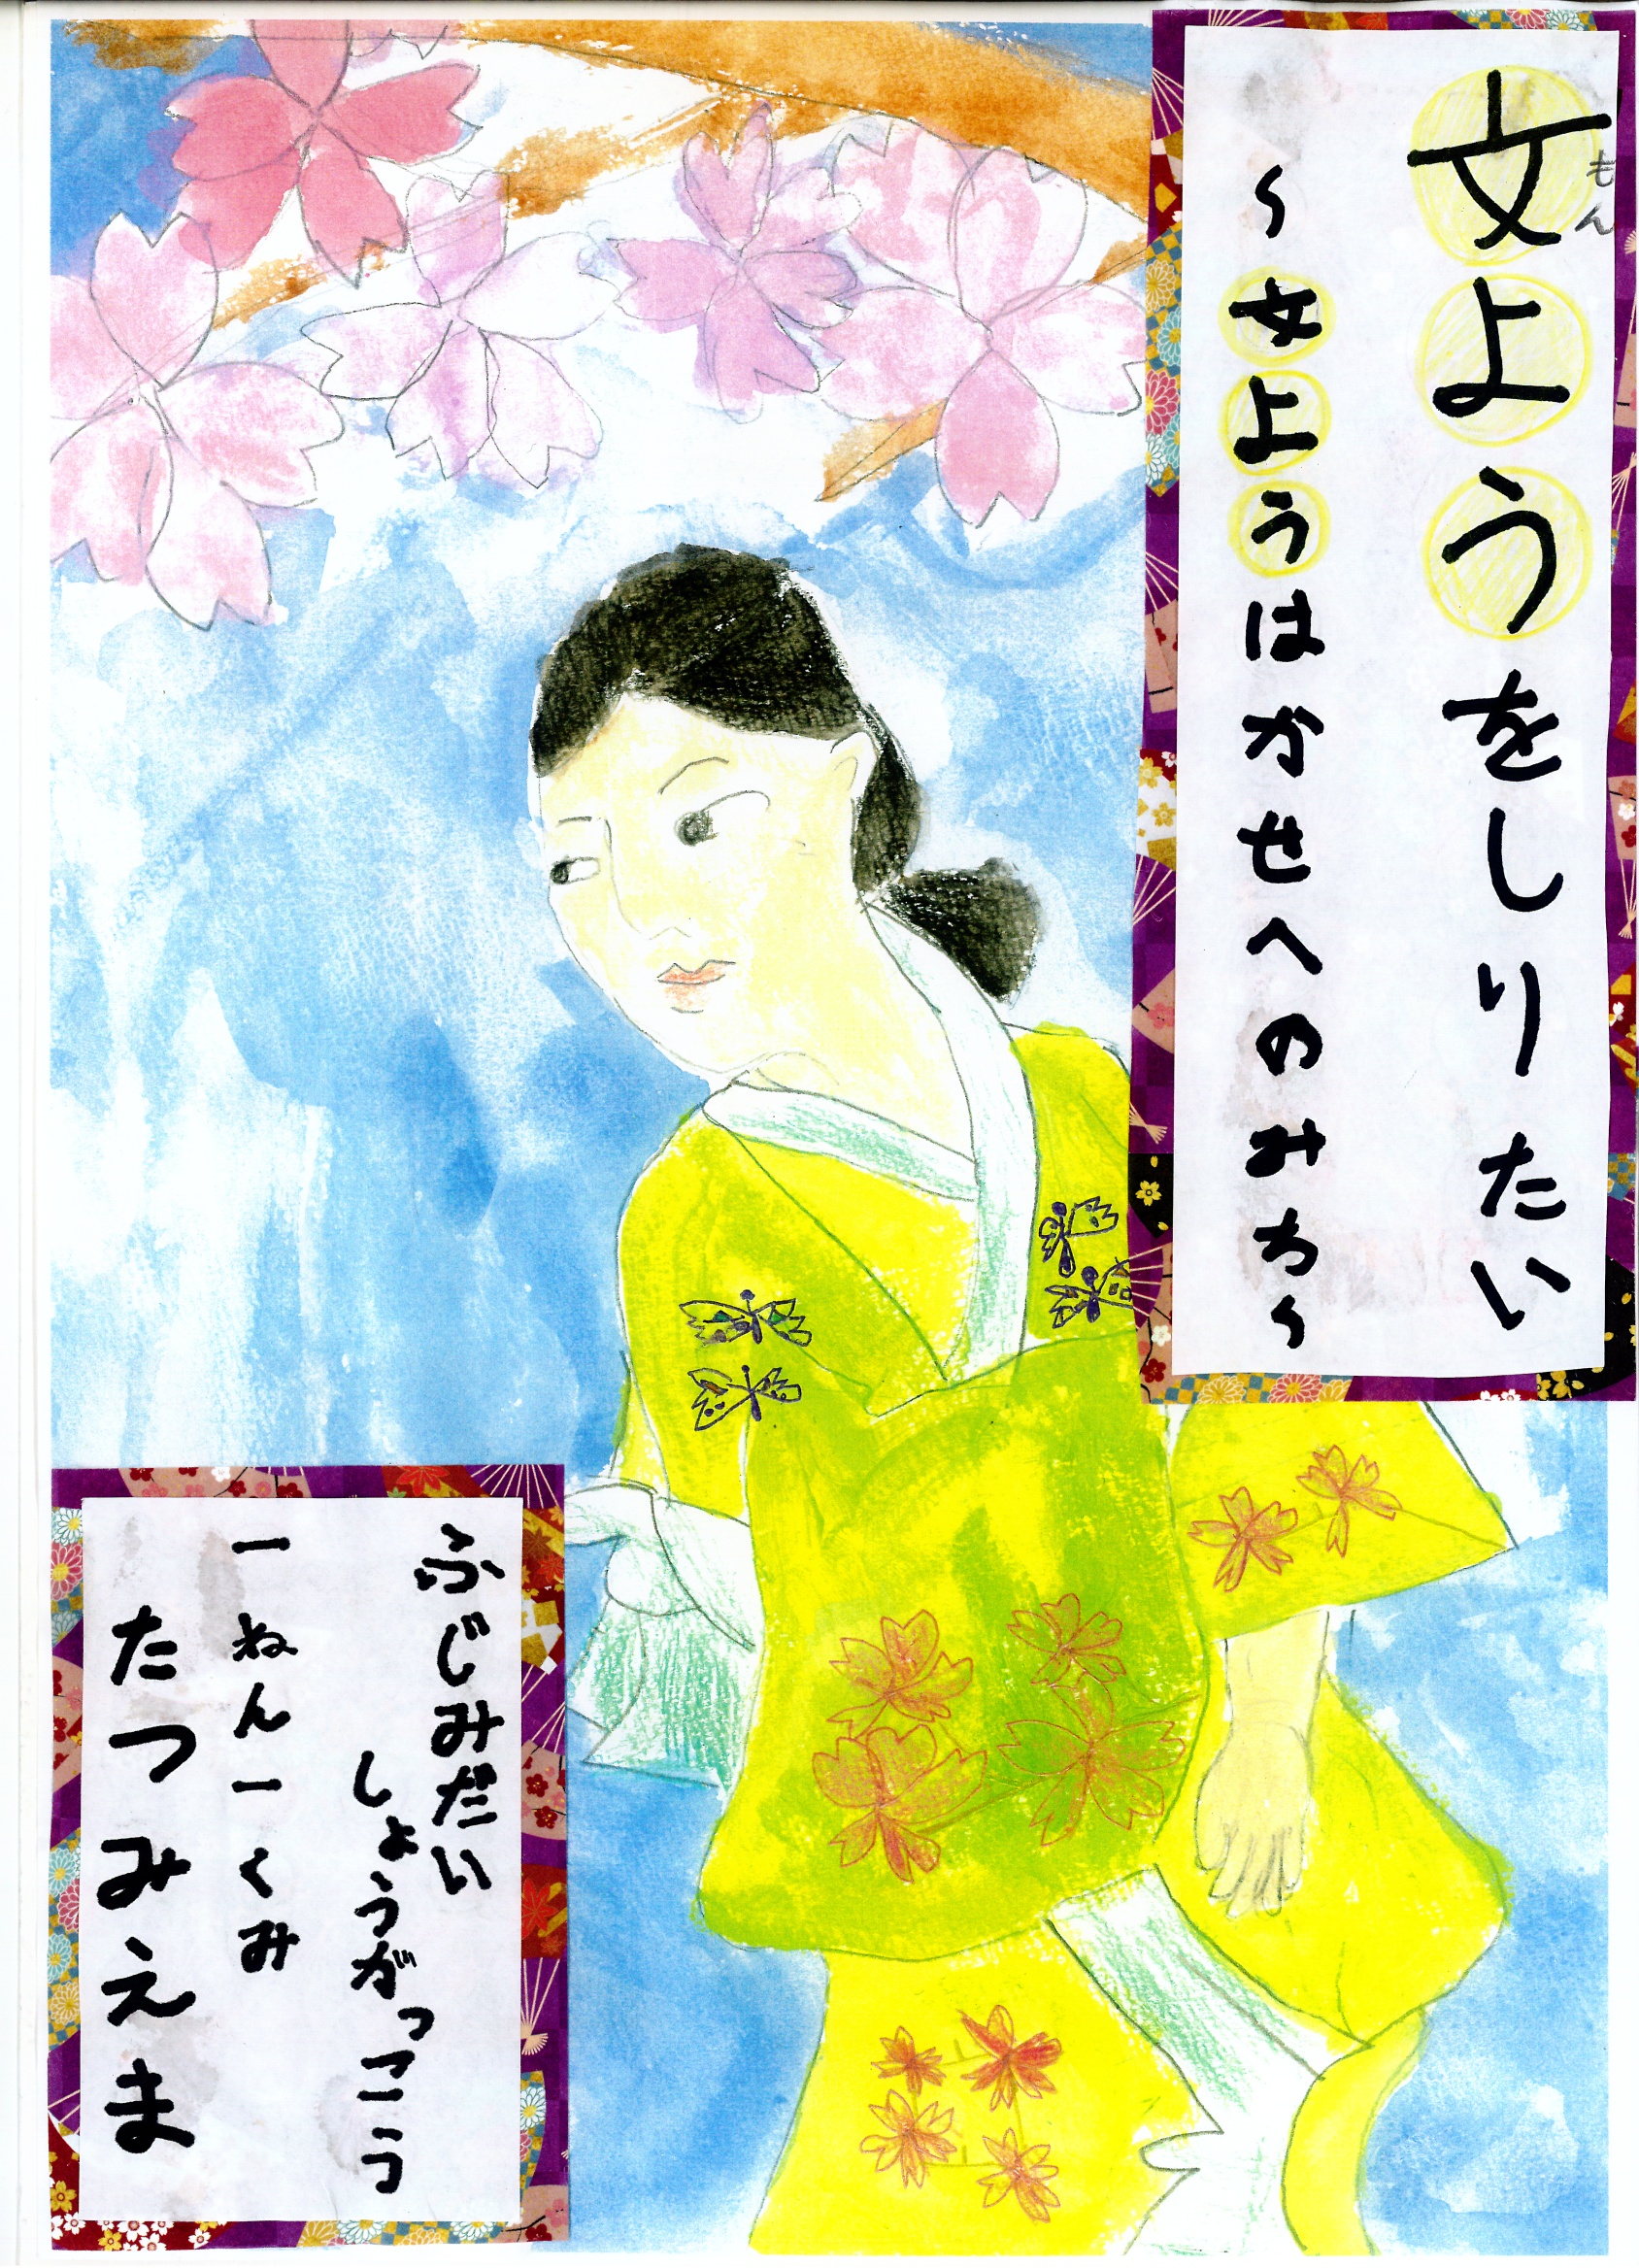 文ようをしりたい
もん
〜文ようはかせへのみち〜
ふじみだい
しょうがっこう
一ねん一くみ
たつみえま